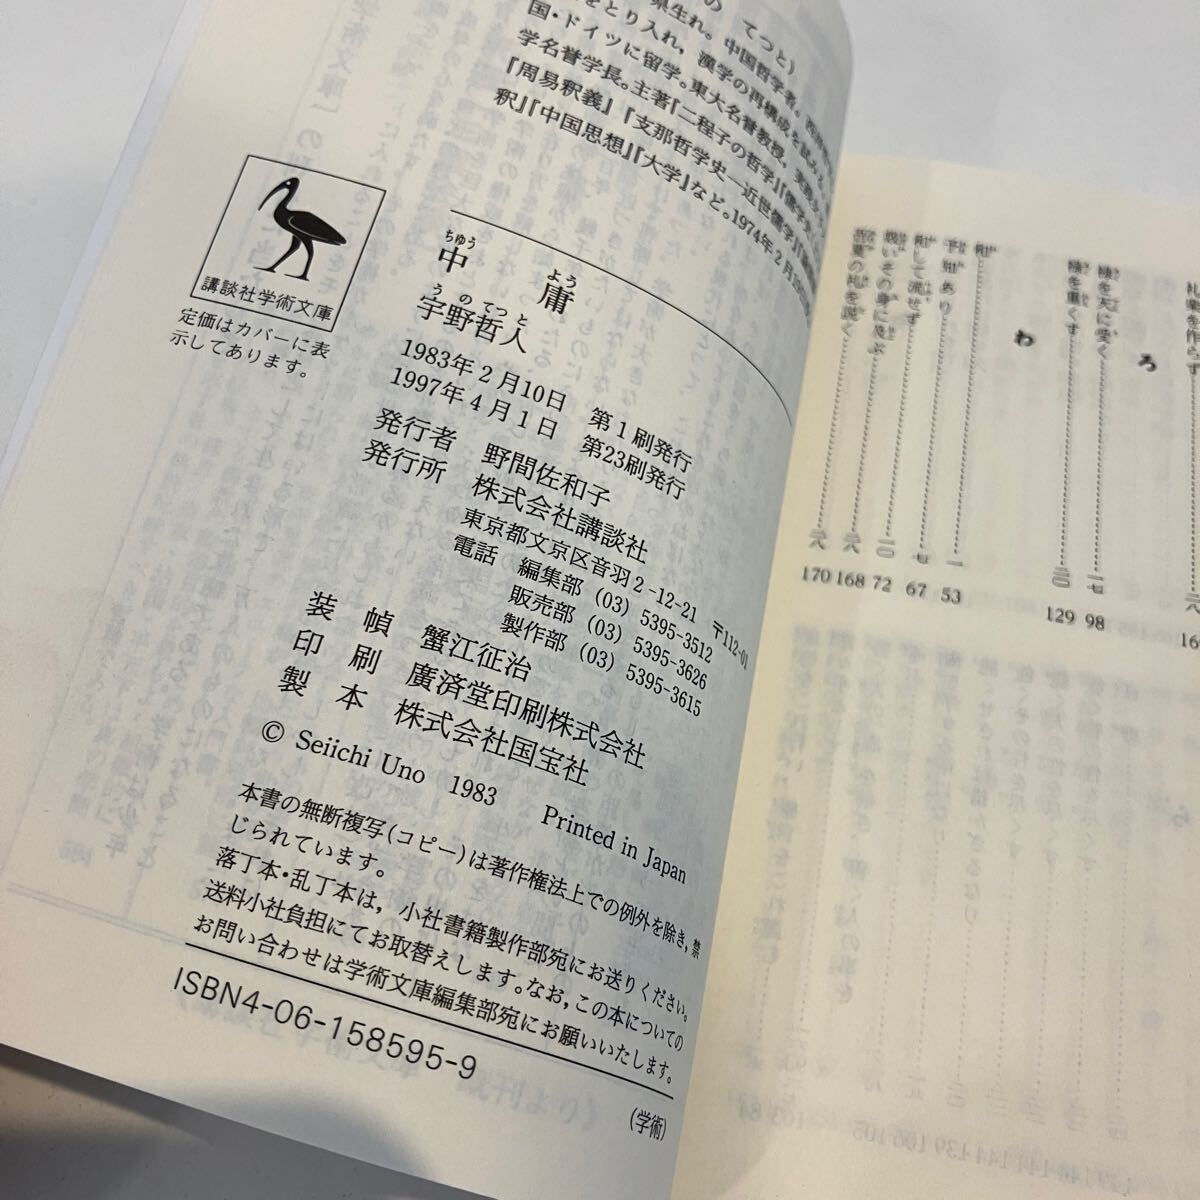 の てつと)
県生れ。中国哲学者。
をとり入れ,漢学の再構成を試みる
国・ドイツに留学。東大名誉教授,実践
学名誉学長。主著『二程子の哲学』『儒学史
『周易釈義』『支那哲学史―近世儒学』
釈』『中国思想』『大学』など。1974年2月
講談社学術文庫
定価はカバーに表
示してあります。
ちゅう よう
中 庸
うのてつと
宇野哲人
1983年2月10日 第1刷発行
1997年4月1日 第23刷発行
発行者 野間佐和子
発行所 株式会社講談社
東京都文京区音羽2-12-21 〒112-01
電話 編集部 (03) 5395-3512
販売部 (03) 5395-3626
製作部 (03) 5395-3615
装 幀 蟹江征治
印 刷 廣済堂印刷株式会社
製 本 株式会社国宝社
© Seiichi Uno 1983 Printed in Japan
本書の無断複写(コピー)は著作権法上での例外を除き,禁
じられています。
落丁本・乱丁本は,小社書籍製作部宛にお送りください。
送料小社負担にてお取替えします。なお,この本についての
お問い合わせは学術文庫編集部宛にお願いいたします。
ISBN4-06-158595-9
(学術)
礼楽を作らず 二八 16
ろ
禄を天に受く 一七 98
禄を重くす 二〇 129
わ
和 一 53
和して流せず 七 67
烖いその身に及ぶ 二八 168